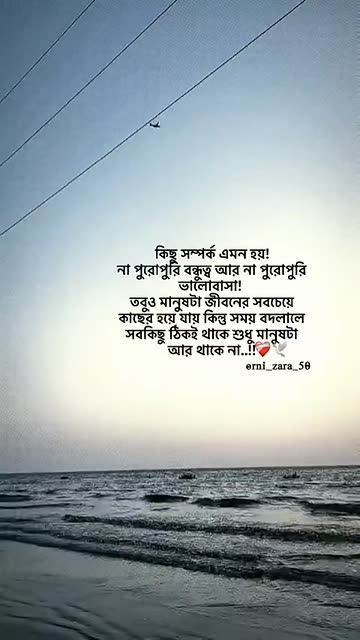 কিছু সম্পর্ক এমন হয়!
না পুরোপুরি বন্ধুত্ব আর না পুরোপুরি
ভালোবাসা!
তবুও মানুষটা জীবনের সবচেয়ে
কাছের হয়ে যায় কিন্তু সময় বদলালে
সবকিছু ঠিকই থাকে শুধু মানুষটা
আর থাকে না..!!❤️‍🩹🕊️
orni_zara_50